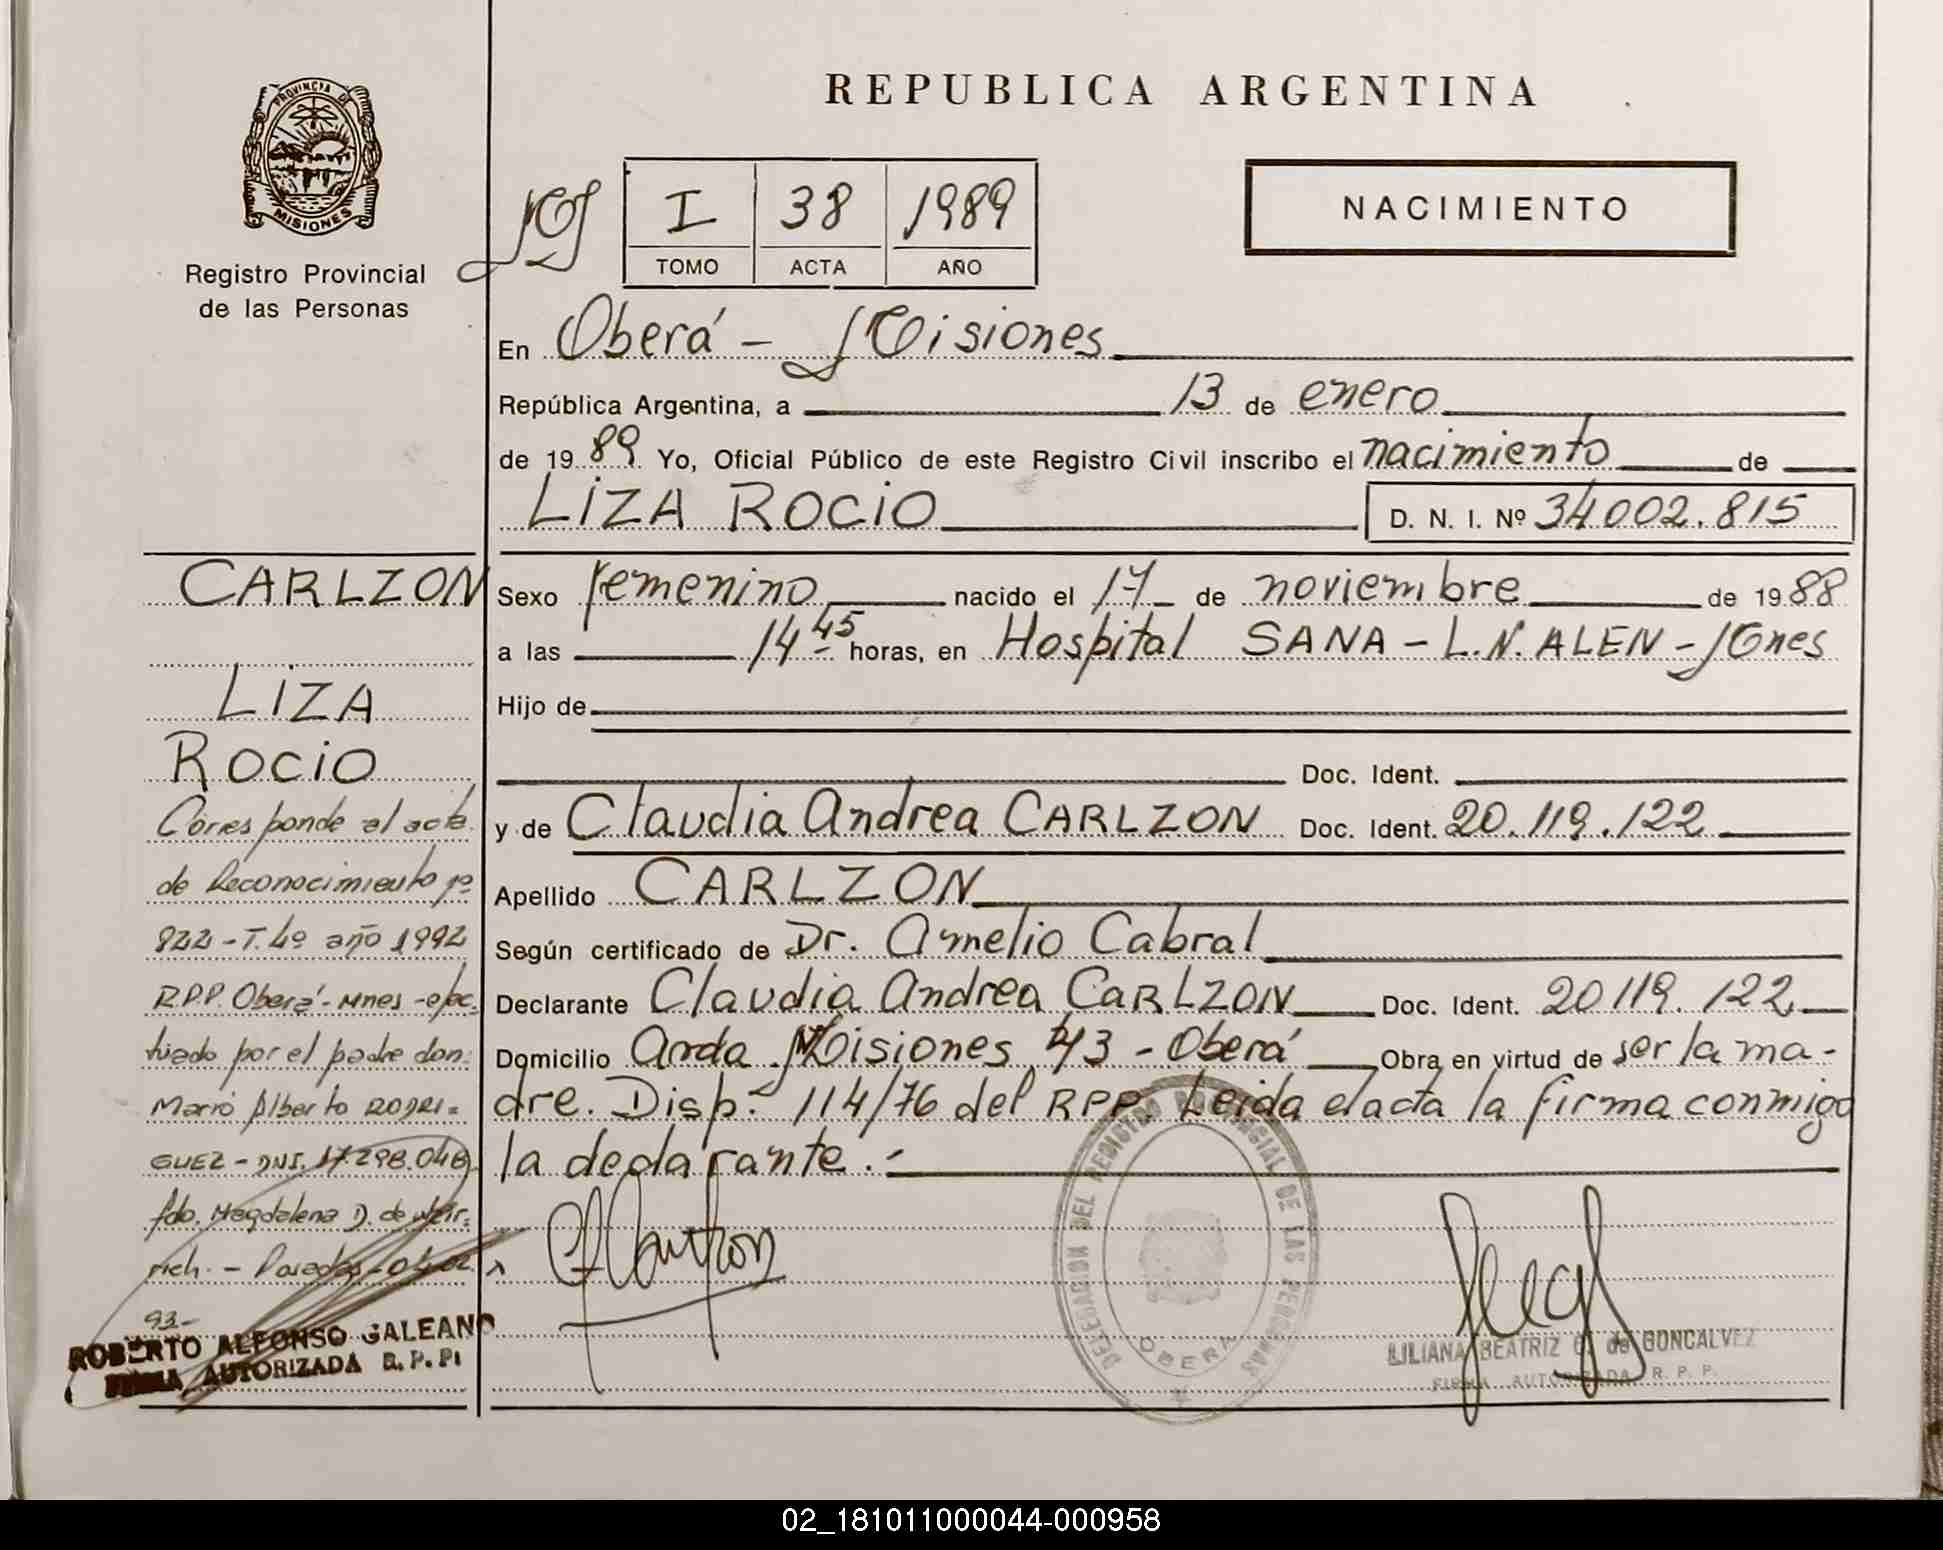 PROVINCIA DE
MISIONES
Registro Provincial
de las Personas
REPUBLICA ARGENTINA
NACIMIENTO
I 38 1989
TOMO ACTA AÑO
En Oberá - Misiones
República Argentina, a 13 de enero
de 1989 Yo, Oficial Público de este Registro Civil inscribo el nacimiento de
LIZA ROCIO D. N. I. Nº 34002.815
Sexo femenino nacido el 17 de noviembre de 1988
a las 14 45 horas, en Hospital SANA - L.N. ALEN - Mnes
Hijo de
Doc. Ident.
y de Claudia Andrea CARLZON Doc. Ident. 20.119.122
Apellido CARLZON
Según certificado de Dr. Amelio Cabral
Declarante Claudia Andrea CARLZON Doc. Ident. 20119.122
Domicilio Avda Misiones 43 - Oberá Obra en virtud de ser la ma-
dre. Disp. 114/76 del RPP. Leida el acta la firma conmigo
la declarante.-
CARLZON
LIZA
ROCIO
Corresponde al acta
de Reconocimiento nº
822 - T. 4º año 1992
R.P.P. Oberá - Mnes - efec
tuado por el padre don:
Mario Alberto RODRI=
GUEZ - DNI. 17.298.048
fdo. Magdalena D. de
rich. - Posadas - 04-02
93.-
ROBERTO ALFONSO GALEANO
FIRMA AUTORIZADA R. P. P.
DELEGACION DEL REGISTRO PROVINCIAL DE LAS PERSONAS
OBERA
LILIANA BEATRIZ de GONCALVEZ
FIRMA AUTORIZADA R. P. P.
02_181011000044-000958